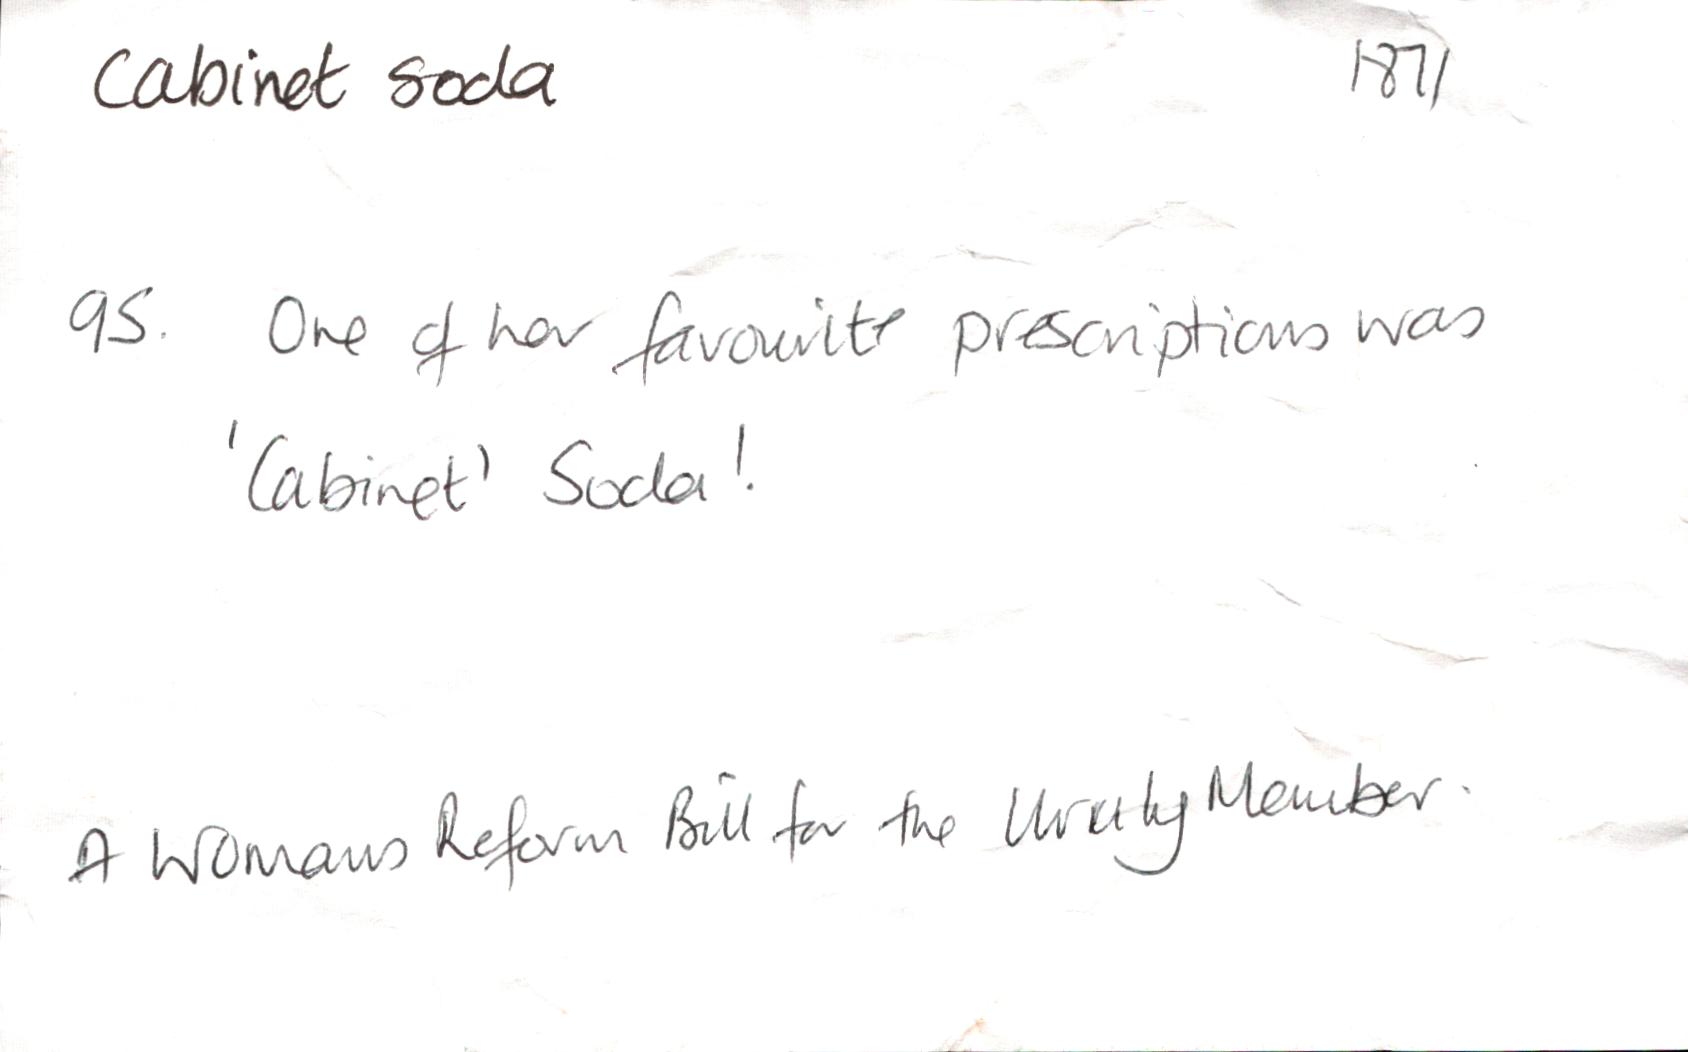 Cabinet soda 1871
95. One of her favourite prescriptions was
'Cabinet' Soda!
A Womans Reform Bill for the Unruly Member.